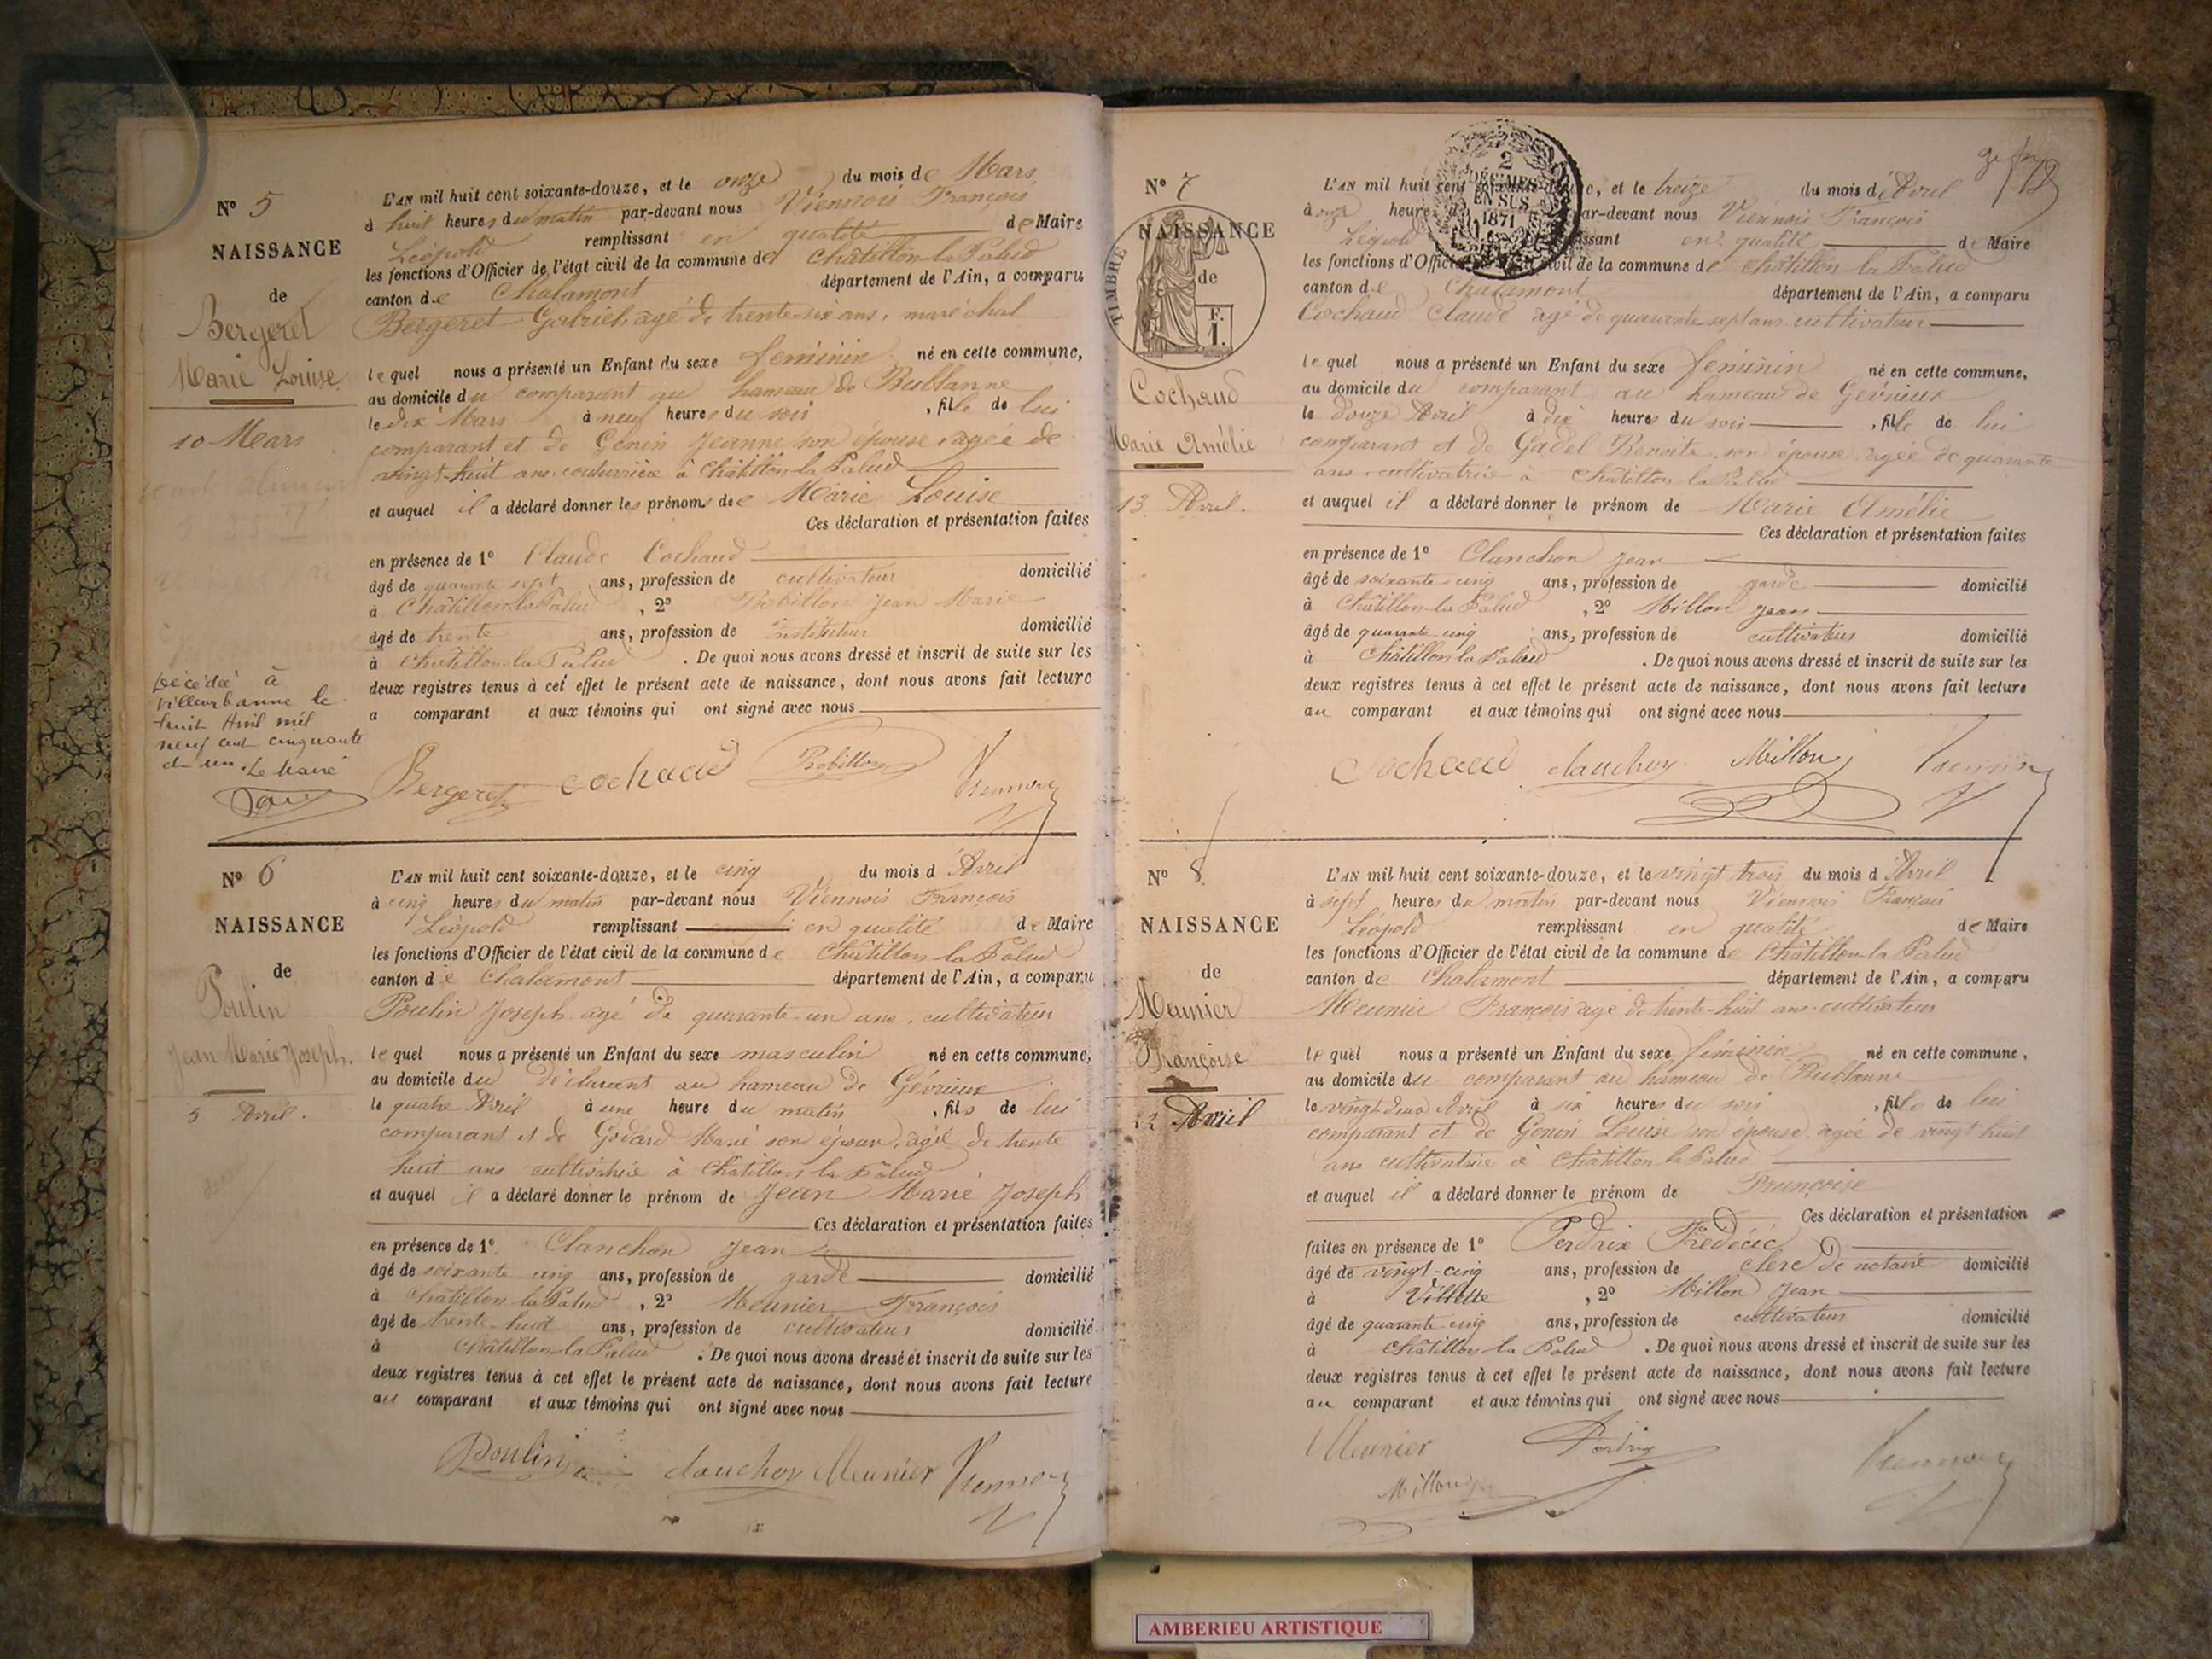 Nº 5
NAISSANCE
de
Bergeret
Marie Louise
10 Mars
Décédée à
Villeurbanne le
huit Avril mil
neuf cent cinquante
et un. Le Maire
L'AN mil huit cent soixante-douze, et le onze du mois de Mars
à huit heures du matin par-devant nous Viennois François
Léopold remplissant en qualité de Maire
les fonctions d'Officier de l'état civil de la commune de Châtillon la Palud
canton de Chalamont département de l'Ain, a comparu
Bergeret Gabriel, agé de trente-six ans, maréchal
lequel nous a présenté un Enfant du sexe feminin né en cette commune,
au domicile du comparant au hameau de Bublanne
le dix Mars à neuf heures du soir, fille de lui
comparant et de Genin Jeanne son épouse, agée de
vingt-huit ans, couturrière à Châtillon la Palud
et auquel il a déclaré donner les prénoms de Marie Louise
Ces déclaration et présentation faites
en présence de 1º Claude Cochaud
âgé de quarante sept ans, profession de cultivateur domicilié
à Châtillon la Palud, 2º Robillon Jean Marie
âgé de trente ans, profession de instituteur domicilié
à Châtillon la Palud. De quoi nous avons dressé et inscrit de suite sur les
deux registres tenus à cet effet le présent acte de naissance, dont nous avons fait lecture
a comparant et aux témoins qui ont signé avec nous
Bergeret cochaud Robillon Viennois
Nº 6
NAISSANCE
de
Poulin
Jean Marie Joseph.
5 Avril.
L'AN mil huit cent soixante-douze, et le cinq du mois d'Avril
à cinq heures du matin par-devant nous Viennois François
Léopold remplissant en qualité de Maire
les fonctions d'Officier de l'état civil de la commune de Châtillon la Palud
canton de Chalamont département de l'Ain, a comparu
Poulin Joseph agé de quarante-un ans, cultivateur
lequel nous a présenté un Enfant du sexe masculin né en cette commune,
au domicile du déclarant au hameau de Gévrieux
le quatre Avril à une heure du matin, fils de lui
comparant et de Godard Marie son épouse, agée de trente
huit ans cultivatrice à Châtillon la Palud
et auquel il a déclaré donner le prénom de Jean Marie Joseph
Ces déclaration et présentation faites
en présence de 1º Clanchon Jean
âgé de soixante cinq ans, profession de garde domicilié
à Châtillon la Palud, 2º Meunier François
âgé de trente-huit ans, profession de cultivateur domicilié
à Châtillon la Palud. De quoi nous avons dressé et inscrit de suite sur les
deux registres tenus à cet effet le présent acte de naissance, dont nous avons fait lecture
au comparant et aux témoins qui ont signé avec nous
Poulin clanchon Meunier Viennois
Nº 7
NAISSANCE
de
TIMBRE
F.
1.
Cochaud
Marie Amélie
13 Avril.
2
DÉCIMES
EN SUS
1871
L'AN mil huit cent soixante-douze, et le treize du mois d'Avril
à onze heures par-devant nous Viennois François
Léopold remplissant en qualité de Maire
les fonctions d'Officier de l'état civil de la commune de Châtillon la Palud
canton de Chalamont département de l'Ain, a comparu
Cochaud Claude agé de quarante sept ans cultivateur
lequel nous a présenté un Enfant du sexe feminin né en cette commune,
au domicile du comparant au hameau de Gévrieux
le douze Avril à dix heures du soir, fille de lui
comparant et de Gadel Benoite son épouse agée de quarante
ans cultivatrice à Châtillon la Palud
et auquel il a déclaré donner le prénom de Marie Amélie
Ces déclaration et présentation faites
en présence de 1º Clanchon Jean
âgé de soixante cinq ans, profession de garde domicilié
à Châtillon la Palud, 2º Millon Jean
âgé de quarante cinq ans, profession de cultivateur domicilié
à Châtillon la Palud. De quoi nous avons dressé et inscrit de suite sur les
deux registres tenus à cet effet le présent acte de naissance, dont nous avons fait lecture
au comparant et aux témoins qui ont signé avec nous
Cochaud clanchon Millon Viennois
Nº 8
NAISSANCE
de
Meunier
Françoise
Avril
L'AN mil huit cent soixante-douze, et le vingt trois du mois d'Avril
à sept heures du matin par-devant nous Viennois François
Léopold remplissant en qualité de Maire
les fonctions d'Officier de l'état civil de la commune de Châtillon la Palud
canton de Chalamont département de l'Ain, a comparu
Meunier François agé de trente-huit ans cultivateur
lequel nous a présenté un Enfant du sexe féminin né en cette commune,
au domicile du comparant au hameau de Bublanne
le vingt deux Avril à six heures du soir, fille de lui
comparant et de Genin Louise son épouse agée de vingt huit
ans cultivatrice à Châtillon la Palud
et auquel il a déclaré donner le prénom de Françoise
Ces déclaration et présentation
faites en présence de 1º Perdrix Frédécic
âgé de vingt-cinq ans, profession de clerc de notaire domicilié
à Villette, 2º Millon Jean
âgé de quarante-cinq ans, profession de cultivateur domicilié
à Châtillon la Palud. De quoi nous avons dressé et inscrit de suite sur les
deux registres tenus à cet effet le présent acte de naissance, dont nous avons fait lecture
au comparant et aux témoins qui ont signé avec nous
Meunier Perdrix Viennois
Millon
AMBERIEU ARTISTIQUE